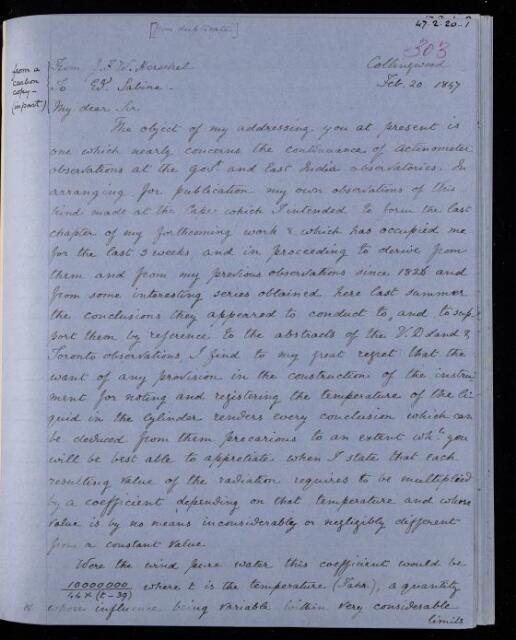 [from duplicate]
47.2.20.1
303
from a
carbon
copy-
(in part)
From J. F. W. Herschel
Collingwood
To Ed. Sabine.
Feb. 20 1847
My dear Sir
The object of my addressing you at present is
one which nearly concerns the continuance of actinometer
observations at the Govt. and East India observatories. In
arranging for publication my own observations of this
kind made at the Cape which I intended to form the last
chapter of my forthcoming work & which has occupied me
for the last 3 weeks, and in proceeding to derive from
them and from my previous observations since 1826 and
from some interesting series obtained here last summer
the conclusions they appeared to conduct to, and to sup-
port them by reference to the abstracts of the V. D land &
Toronto observations, I find to my great regret that the
want of any provision in the construction of the instru-
ment for noting and registering the temperature of the li-
quid in the Cylinder renders every conclusion which can
be deduced from them precarious to an extent whh. you
will be best able to appretiate when I state that each
resulting value of the radiation requires to be multiplied
by a coefficient depending on that temperature and whose
value is by no means inconsiderably or negligibly different
from a constant value.
Were the pure water this coefficient would be
10000000
44 × (t - 39) where t is the temperature (Fahr.), a quantity
whose influence being variable within very considerable
limits